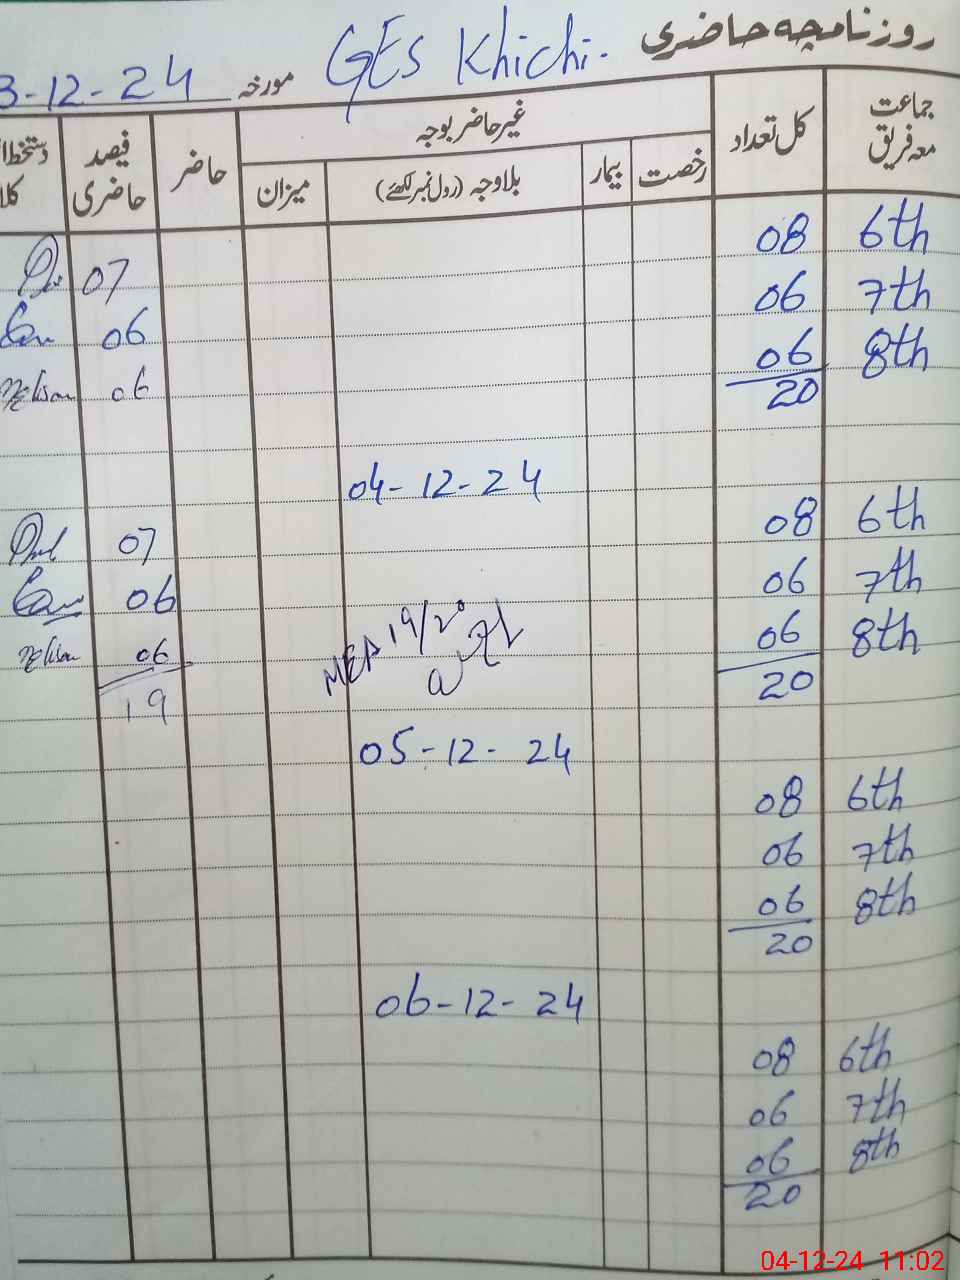 روزنامچہ حاضری GES Khichi.
مورخہ 3-12-24
جماعت معہ فریق کل تعداد غیر حاضر بوجہ حاضر فیصد حاضری
رخصت بیمار بلاوجہ (رول نمبر لکھئے) میزان
6th 08 07
7th 06 06
8th 06 06
20
04-12-24
6th 08 07
7th 06 06
8th 06 06
20 19
MEA 19/20
05-12-24
6th 08
7th 06
8th 06
20
06-12-24
6th 08
7th 06
8th 06
20
04-12-24 11:02